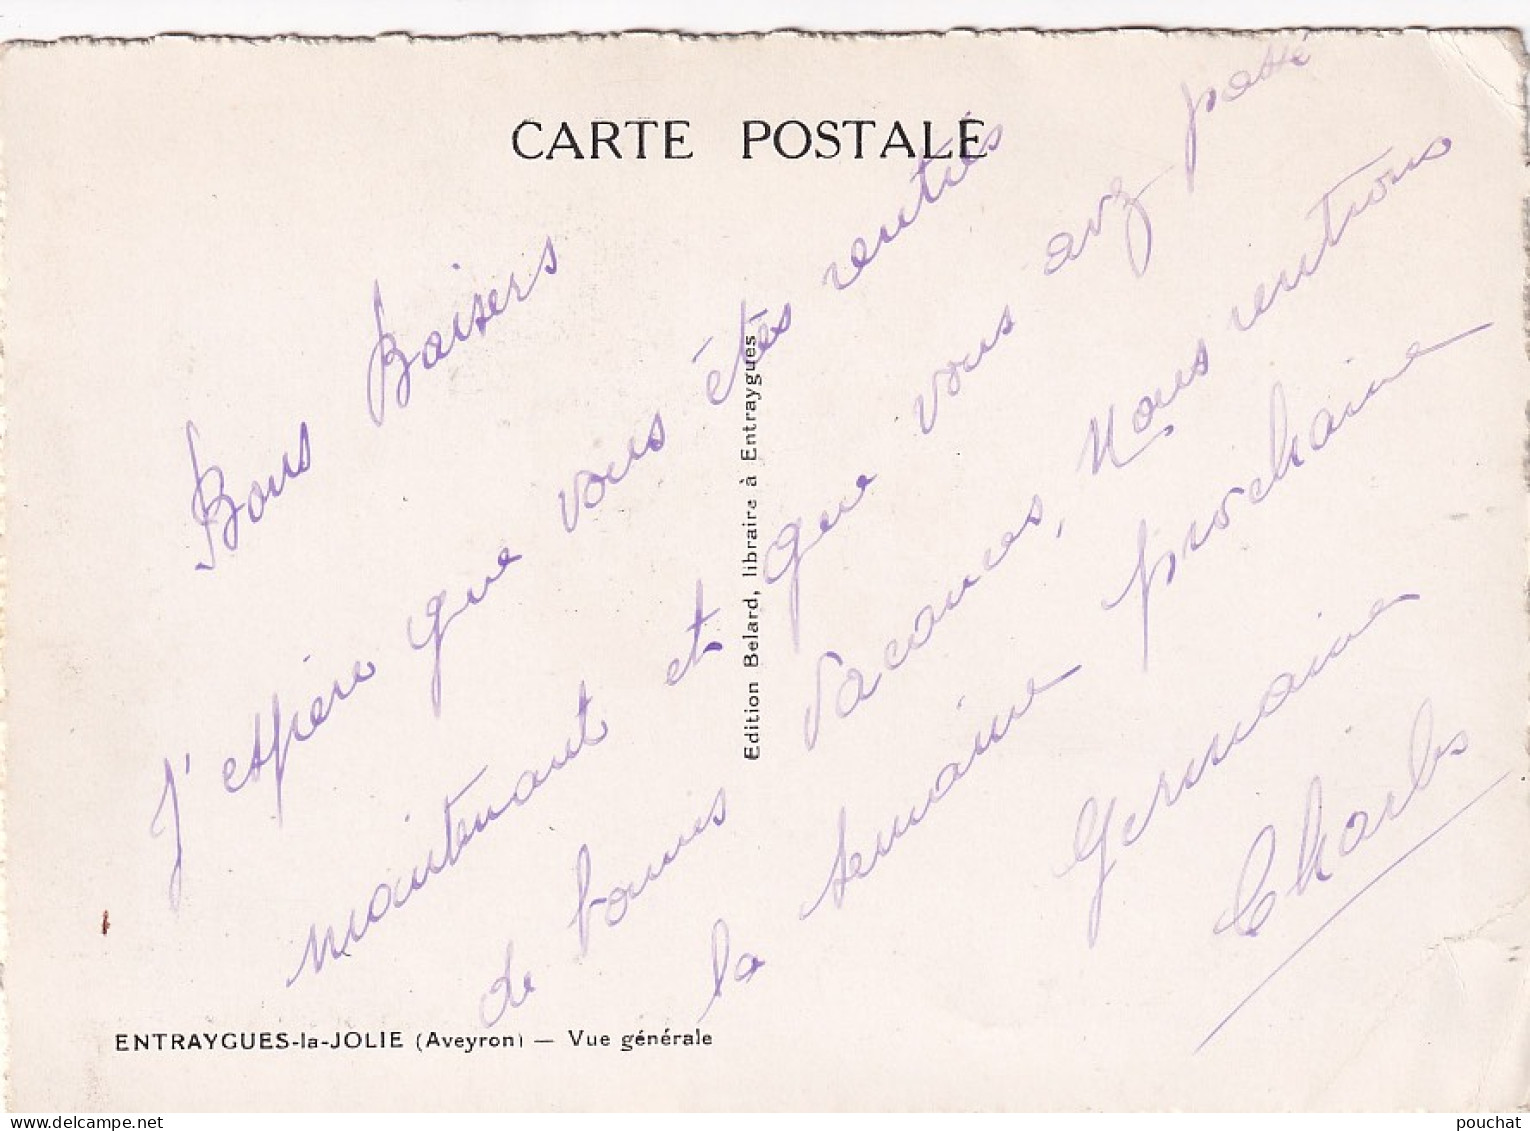 CARTE POSTALE
Bons Baisers
J'espère que vous êtes rentrés
maintenant et que vous avz passé
de bonnes vacances, Nous rentrons
la semaine prochaine
Germaine
Charles
Edition Belard, libraire à Entraygues
ENTRAYGUES-la-JOLIE (Aveyron) — Vue générale
www.delcampe.net
pouchat